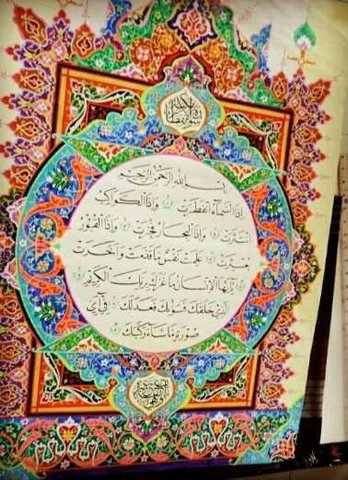 سورة الانفطار
بسم الله الرحمن الرحيم
إِذَا السَّمَاءُ انفَطَرَتْ ۝ وَإِذَا الْكَوَاكِبُ
انتَثَرَتْ ۝ وَإِذَا الْبِحَارُ فُجِّرَتْ ۝ وَإِذَا الْقُبُورُ
بُعْثِرَتْ ۝ عَلِمَتْ نَفْسٌ مَا قَدَّمَتْ وَأَخَّرَتْ
۝ يَا أَيُّهَا الْإِنسَانُ مَا غَرَّكَ بِرَبِّكَ الْكَرِيمِ ۝
الَّذِي خَلَقَكَ فَسَوَّاكَ فَعَدَلَكَ ۝ فِي أَيِّ
صُورَةٍ مَا شَاءَ رَكَّبَكَ ۝